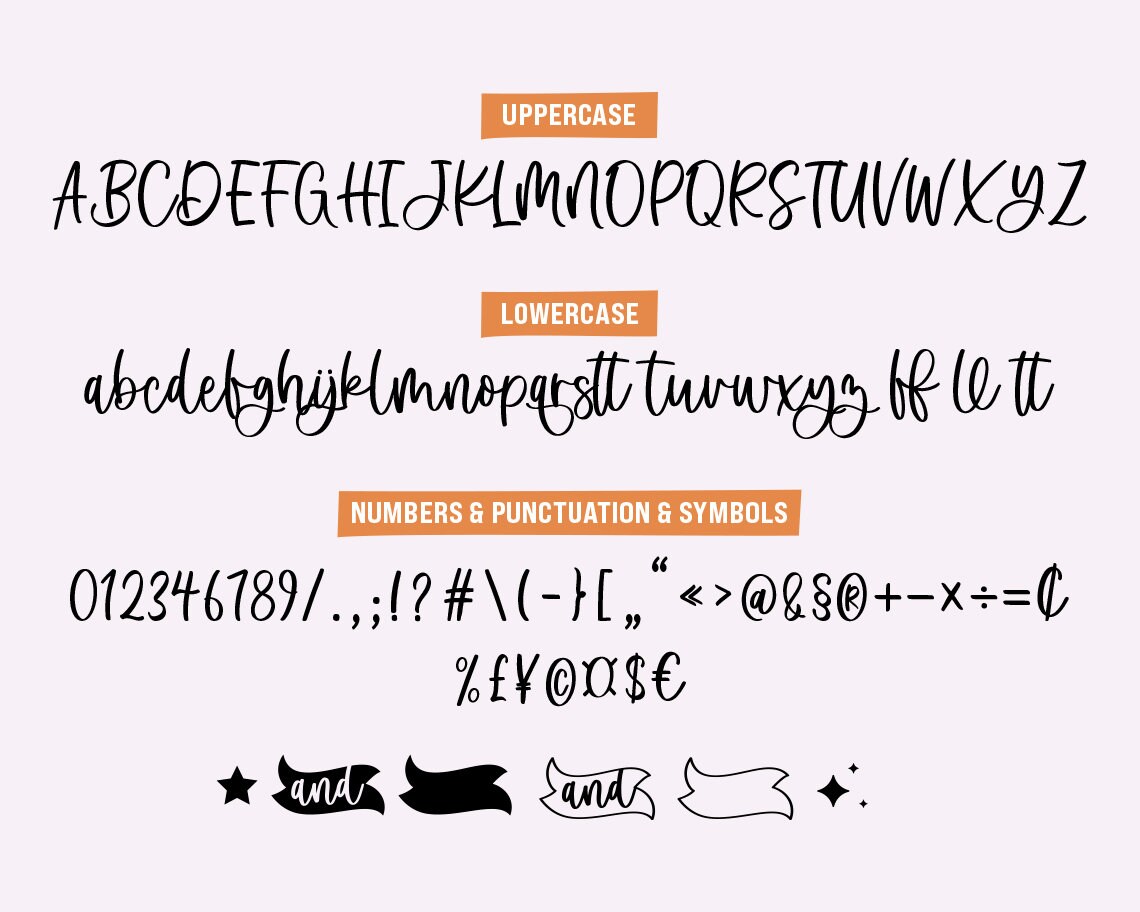 UPPERCASE
ABCDEFGHIJKLMNOPQRSTUVWXYZ
LOWERCASE
abcdefghijklmnopqrstt tuvwxyz ff ll tt
NUMBERS & PUNCTUATION & SYMBOLS
012346789/.,;!?#\(-}[„“«>@&§®+−×÷=₵
%£¥©¤$€
and and